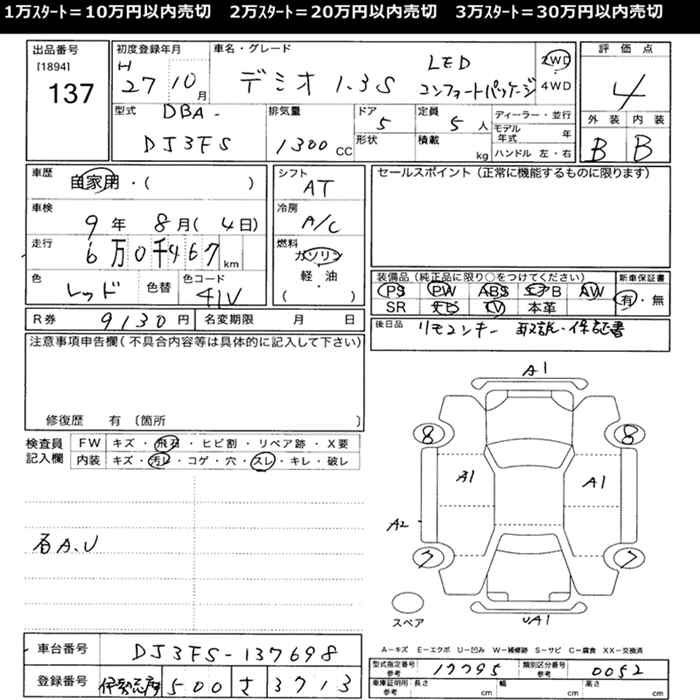 1万スタート＝10万円以内売切　2万スタート＝20万円以内売切　3万スタート＝30万円以内売切
出品番号
[1894]
137
初度登録年月
H
27 10月
車名・グレード
デミオ 1.3S
LED
コンフォートパッケージ
2WD
4WD
評価点
4
型式
DBA-
DJ3FS
排気量
1300 CC
ドア
5
形状
定員
5 人
積載
kg
ディーラー・並行
モデル年式 年
ハンドル 左・右
外装 内装
B B
車歴
自家用・( )
車検
9年 8月(4日)
走行
6万0千467 km
色
レッド
色替
色コード
41V
シフト
AT
冷房
A/C
燃料
ガソリン
軽・油
( )
セールスポイント（正常に機能するものに限ります）
装備品（純正品に限り○をつけてください）
PS PW ABS エアB AW
SR ナビ TV 本革
新車保証書
有・無
R券 9130円 名変期限 月 日
後日品 リモコンキー 取説・保証書
注意事項申告欄（不具合内容等は具体的に記入して下さい）
修復歴 有〔箇所 〕
検査員
記入欄
FW キズ・飛石・ヒビ割・リペア跡・X要
内装 キズ・汚レ・コゲ・穴・スレ・キレ・破レ
各A.U
A1
8
8
A1
A1
A2
7
7
スペア
UA1
A-キズ E-エクボ U-凹み W-補修跡 S-サビ C-腐食 XX-交換済
車台番号 DJ3FS-137698
登録番号 500 さ 3713
型式指定番号
参考
17795
類別区分番号
参考
0052
車庫証明用
参考
長さ cm 幅 cm 高さ cm